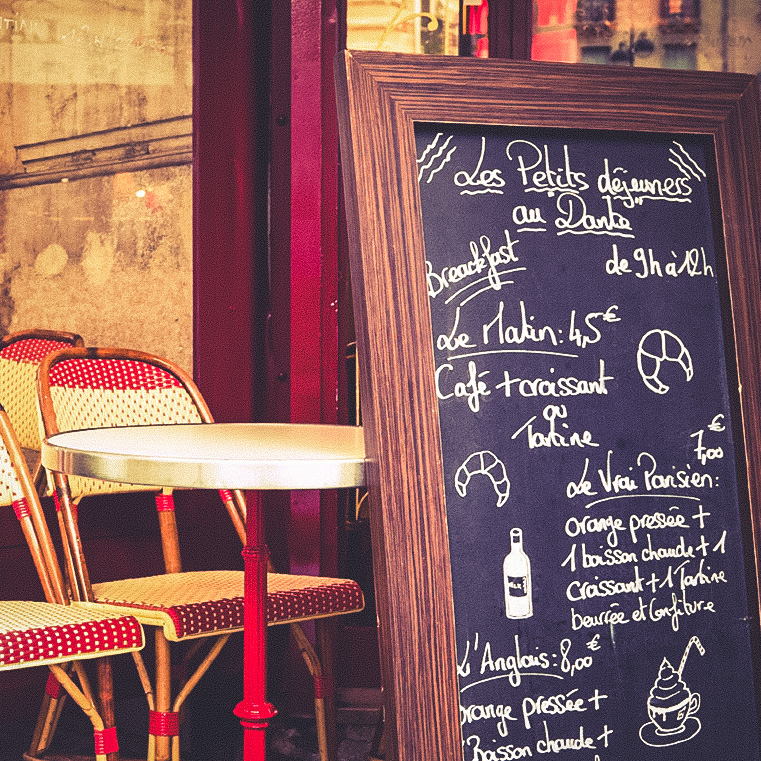 Les Petits déjeuners
au "Dante"
Breackfast
de 9h à 12h
Le Matin: 4,5€
Café + croissant
ou
Tartine
7,00€
Le Vrai Parisien:
orange pressée +
1 boisson chaude + 1
croissant + 1 Tartine
beurrée et Confiture
L'Anglais: 8,00€
orange pressée +
Boisson chaude +